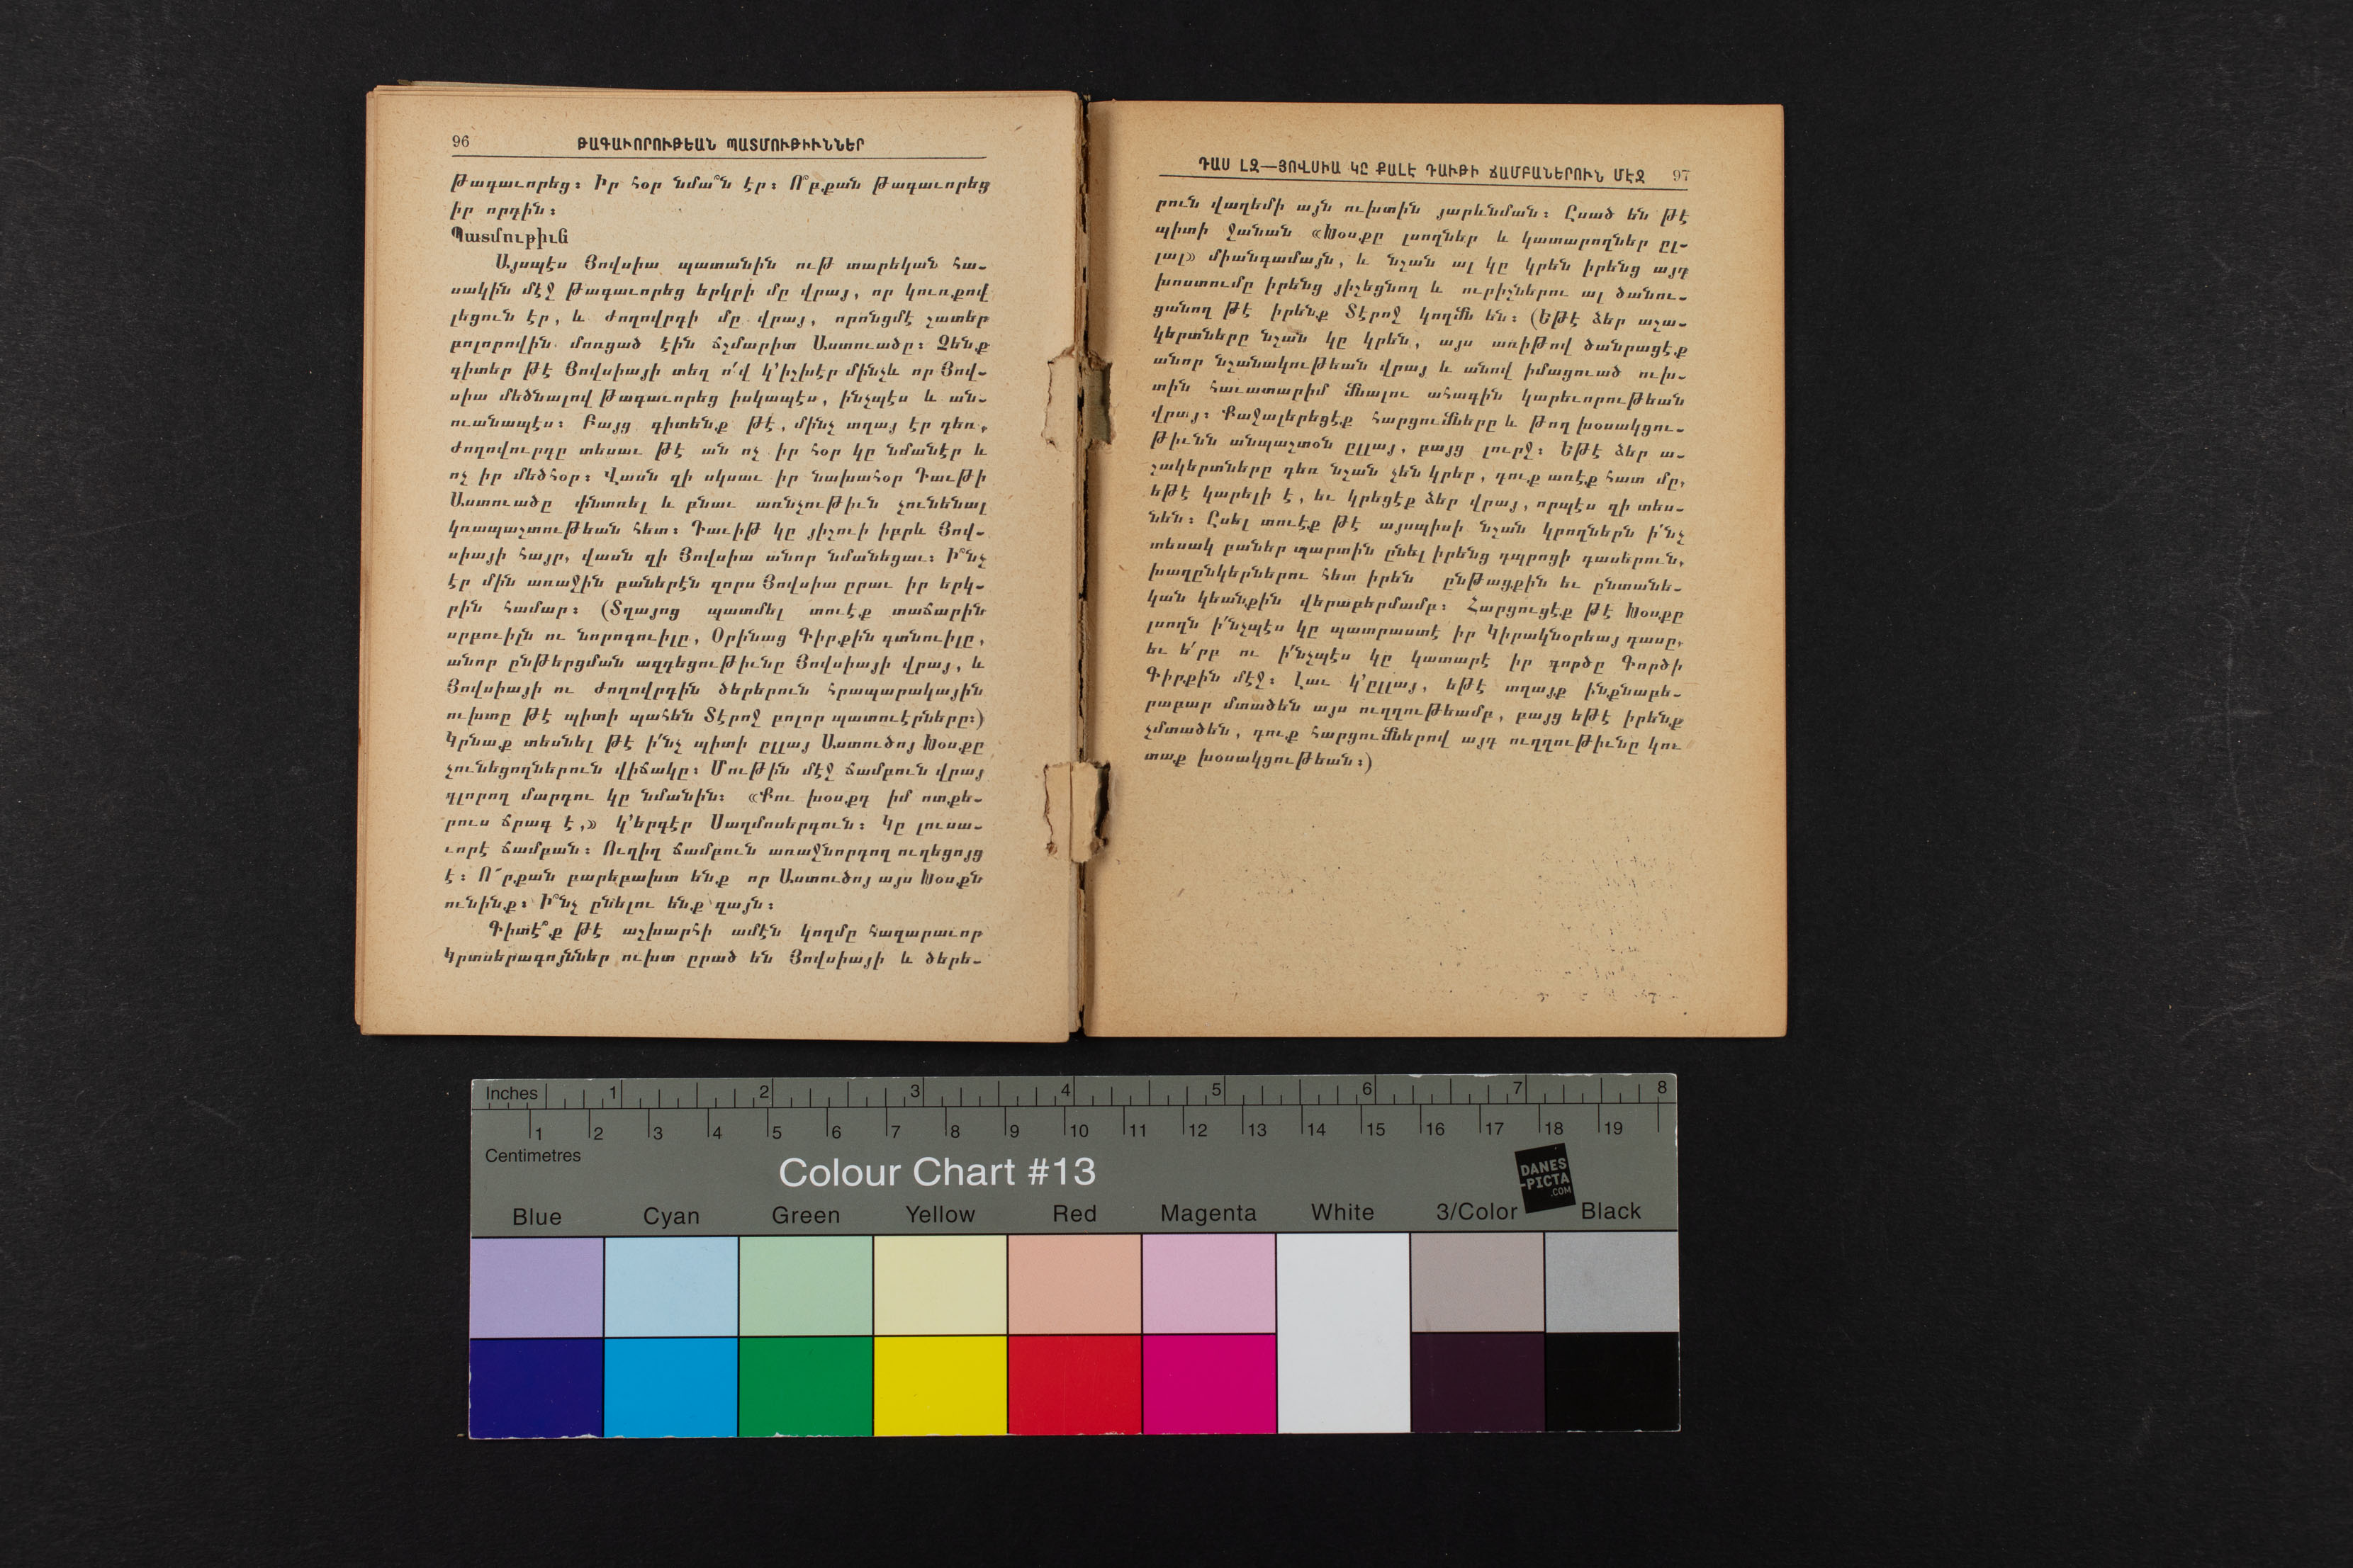 96 ԹԱԳԱՒՈՐՈՒԹԵԱՆ ՊԱՏՄՈՒԹԻՒՆՆԵՐ
Թագաւորեց։ Իր հօր նմա՞ն էր։ Ո՞րքան թագաւորեց
իր որդին։
Պատմութիւն
Այսպէս Յովսիա պատանին ութ տարեկան հա-
սակին մէջ թագաւորեց երկրի մը վրայ, որ կուռքով
լեցուն էր, և ժողովրդի մը վրայ, որոնցմէ շատեր
բոլորովին մոռցած էին ճշմարիտ Աստուածը։ Չենք
գիտեր թէ Յովսիայի տեղ ո՛վ կ՚իշխէր մինչև որ Յով-
սիա մեծնալով թագաւորեց իսկապէս, ինչպէս և ան-
ուանապէս։ Բայց գիտենք թէ, մինչ տղայ էր դեռ,
ժողովուրդը տեսաւ թէ ան ոչ իր հօր կը նմանէր և
ոչ իր մեծհօր։ Վասն զի սկսաւ իր նախահօր Դաւթի
Աստուածը փնտռել և բնաւ առնչութիւն չունենալ
կռապաշտութեան հետ։ Դաւիթ կը յիշուի իբրև Յով-
սիայի հայր, վասն զի Յովսիա անոր նմանեցաւ։ Ի՞նչ
էր մին առաջին բաներէն զորս Յովսիա ըրաւ իր երկ-
րին համար։ (Տղայոց պատմել տուէք տաճարին
սրբուիլն ու նորոգուիլը, Օրինաց Գիրքին գտնուիլը,
անոր ընթերցման ազդեցութիւնը Յովսիայի վրայ, և
Յովսիայի ու ժողովրդին ծերերուն հրապարակային
ուխտը թէ պիտի պահեն Տէրոջ բոլոր պատուէրները։)
Կրնաք տեսնել թէ ի՛նչ պիտի ըլլայ Աստուծոյ Խօսքը
չունեցողներուն վիճակը։ Մութին մէջ ճամբուն վրայ
գլորող մարդու կը նմանին։ «Քու խօսքդ իմ ոտքե-
րուս ճրագ է,» կ՚երգէր Սաղմոսերգուն։ Կը լուսա-
ւորէ ճամբան։ Ուղիղ ճամբուն առաջնորդող ուղեցոյց
է։ Ո՜րքան բարեբախտ ենք որ Աստուծոյ այս Խօսքն
ունինք։ Ի՞նչ ընելու ենք զայն։
Գիտէ՞ք թէ աշխարհի ամէն կողմը հազարաւոր
Կրտսերագոյններ ուխտ ըրած են Յովսիայի և ծերե-
ԴԱՍ ԼԶ—ՅՈՎՍԻԱ ԿԸ ՔԱԼԷ ԴԱՒԹԻ ՃԱՄԲԱՆԵՐՈՒՆ ՄԷՋ 97
րուն վաղեմի այն ուխտին յարևնման։ Ըսած են թէ
պիտի ջանան «Խօսքը լսողներ և կատարողներ ըլ-
լալ» միանգամայն, և նշան ալ կը կրեն իրենց այդ
խոստումը իրենց յիշեցնող և ուրիշներու ալ ծանու-
ցանող թէ իրենք Տէրոջ կողմն են։ (Եթէ ձեր աշա-
կերտները նշան կը կրեն, այս առիթով ծանրացէք
անոր նշանակութեան վրայ և անով իմացուած ուխ-
տին հաւատարիմ մնալու ահագին կարեւորութեան
վրայ։ Քաջալերեցէք հարցումները և թող խօսակցու-
թիւնն անպաշտօն ըլլայ, բայց լուրջ։ Եթէ ձեր ա-
շակերտները դեռ նշան չեն կրեր, դուք առէք հատ մը,
եթէ կարելի է, եւ կրեցէք ձեր վրայ, որպէս զի տես-
նեն։ Ըսել տուէք թէ այսպիսի նշան կրողներն ի՛նչ
տեսակ բաներ պարտին ընել իրենց դպրոցի դասերուն,
խաղընկերներու հետ իրեն ընթացքին եւ ընտանե-
կան կեանքին վերաբերմամբ։ Հարցուցէք թէ Խօսքը
լսողն ի՛նչպէս կը պատրաստէ իր Կիրակնօրեայ դասը,
եւ ե՛րբ ու ի՛նչպէս կը կատարէ իր գործը Գործի
Գիրքին մէջ։ Լաւ կ՚ըլլայ, եթէ տղայք ինքնաբե-
րաբար մտածեն այս ուղղութեամբ, բայց եթէ իրենք
չմտածեն, դուք հարցումներով այդ ուղղութիւնը կու
տաք խօսակցութեան։)
Inches 1 2 3 4 5 6 7 8
1 2 3 4 5 6 7 8 9 10 11 12 13 14 15 16 17 18 19
Centimetres
Colour Chart #13
DANES
-PICTA
.COM
Blue Cyan Green Yellow Red Magenta White 3/Color Black